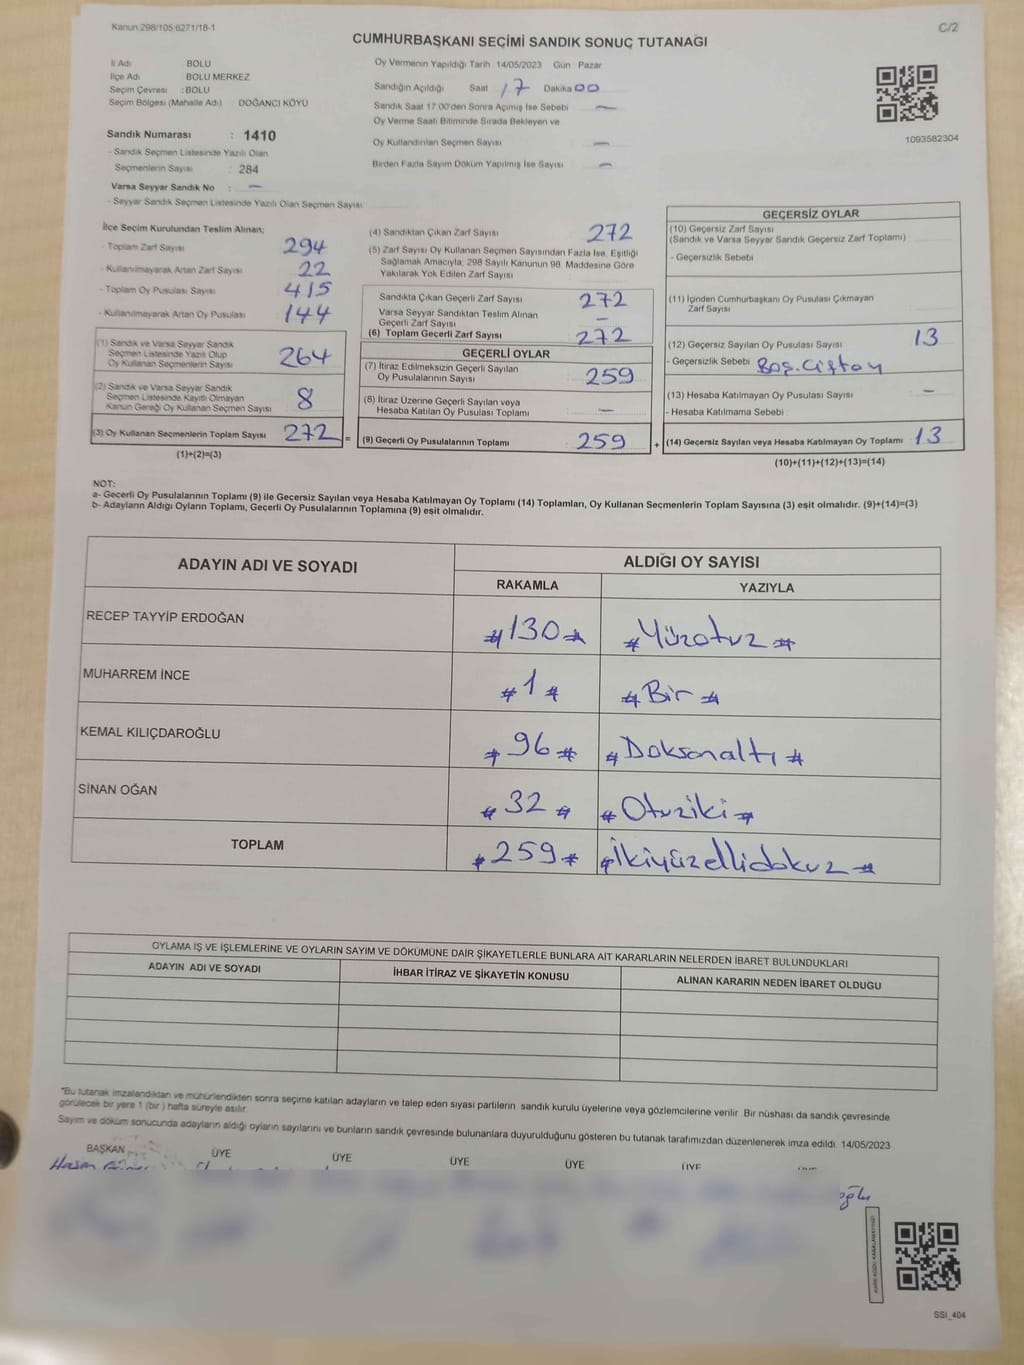 Kanun 298/105 6271/18-1
C/2
CUMHURBAŞKANI SEÇİMİ SANDIK SONUÇ TUTANAĞI
İl Adı BOLU
İlçe Adı BOLU MERKEZ
Seçim Çevresi : BOLU
Seçim Bölgesi (Mahalle Adı) : DOĞANCI KÖYÜ
Sandık Numarası : 1410
- Sandık Seçmen Listesinde Yazılı Olan
Seçmenlerin Sayısı 284
Varsa Seyyar Sandık No : –
- Seyyar Sandık Seçmen Listesinde Yazılı Olan Seçmen Sayısı
Oy Vermenin Yapıldığı Tarih 14/05/2023 Gün : Pazar
Sandığın Açıldığı Saat 17 Dakika 00
Sandık Saat 17:00'den Sonra Açmış İse Sebebi –
Oy Verme Saati Bitiminde Sırada Bekleyen ve
Oy Kullandırılan Seçmen Sayısı –
Birden Fazla Sayım Döküm Yapılmış İse Sayısı –
1093582304
İlçe Seçim Kurulundan Teslim Alınan;
- Toplam Zarf Sayısı 294
- Kullanılmayarak Artan Zarf Sayısı 22
- Toplam Oy Pusulası Sayısı 415
- Kullanılmayarak Artan Oy Pusulası 144
(1) Sandık ve Varsa Seyyar Sandık
Seçmen Listesinde Yazılı Olup
Oy Kullanan Seçmenlerin Sayısı 264
(2) Sandık ve Varsa Seyyar Sandık
Seçmen Listesinde Kayıtlı Olmayan
Kanun Gereği Oy Kullanan Seçmen Sayısı 8
(3) Oy Kullanan Seçmenlerin Toplam Sayısı 272 =
(1)+(2)=(3)
(4) Sandıktan Çıkan Zarf Sayısı 272
(5) Zarf Sayısı Oy Kullanan Seçmen Sayısından Fazla İse, Eşitliği
Sağlamak Amacıyla, 298 Sayılı Kanunun 98. Maddesine Göre
Yakılarak Yok Edilen Zarf Sayısı
Sandıkta Çıkan Geçerli Zarf Sayısı 272
Varsa Seyyar Sandıktan Teslim Alınan
Geçerli Zarf Sayısı –
(6) Toplam Geçerli Zarf Sayısı 272
GEÇERLİ OYLAR
(7) İtiraz Edilmeksizin Geçerli Sayılan
Oy Pusulalarının Sayısı 259
(8) İtiraz Üzerine Geçerli Sayılan veya
Hesaba Katılan Oy Pusulası Toplamı –
(9) Geçerli Oy Pusulalarının Toplamı 259 +
GEÇERSİZ OYLAR
(10) Geçersiz Zarf Sayısı
(Sandık ve Varsa Seyyar Sandık Geçersiz Zarf Toplamı)
- Geçersizlik Sebebi
(11) İçinden Cumhurbaşkanı Oy Pusulası Çıkmayan
Zarf Sayısı
(12) Geçersiz Sayılan Oy Pusulası Sayısı 13
- Geçersizlik Sebebi Boş. Çift oy
(13) Hesaba Katılmayan Oy Pusulası Sayısı –
- Hesaba Katılmama Sebebi
(14) Geçersiz Sayılan veya Hesaba Katılmayan Oy Toplamı 13
(10)+(11)+(12)+(13)=(14)
NOT:
a- Geçerli Oy Pusulalarının Toplamı (9) ile Geçersiz Sayılan veya Hesaba Katılmayan Oy Toplamı (14) Toplamları, Oy Kullanan Seçmenlerin Toplam Sayısına (3) eşit olmalıdır. (9)+(14)=(3)
b- Adayların Aldığı Oyların Toplamı, Geçerli Oy Pusulalarının Toplamına (9) eşit olmalıdır.
ADAYIN ADI VE SOYADI
ALDIĞI OY SAYISI
RAKAMLA YAZIYLA
RECEP TAYYİP ERDOĞAN #130# #Yüzotuz#
MUHARREM İNCE #1# #Bir#
KEMAL KILIÇDAROĞLU #96# #Doksanaltı#
SİNAN OĞAN #32# #Otuziki#
TOPLAM #259# #İkiyüzellidokuz#
OYLAMA İŞ VE İŞLEMLERİNE VE OYLARIN SAYIM VE DÖKÜMÜNE DAİR ŞİKAYETLERLE BUNLARA AİT KARARLARIN NELERDEN İBARET BULUNDUKLARI
ADAYIN ADI VE SOYADI İHBAR İTİRAZ VE ŞİKAYETİN KONUSU ALINAN KARARIN NEDEN İBARET OLDUĞU
*Bu tutanak imzalandıktan ve mühürlendikten sonra seçime katılan adayların ve talep eden siyasi partilerin sandık kurulu üyelerine veya gözlemcilerine verilir. Bir nüshası da sandık çevresinde
görülecek bir yere 1 (bir) hafta süreyle asılır.
Sayım ve döküm sonucunda adayların aldığı oyların sayılarını ve bunların sandık çevresinde bulunanlara duyurulduğunu gösteren bu tutanak tarafımızdan düzenlenerek imza edildi. 14/05/2023
BAŞKAN ÜYE ÜYE ÜYE ÜYE ÜYE
Hasan
oğlu
SSI_404